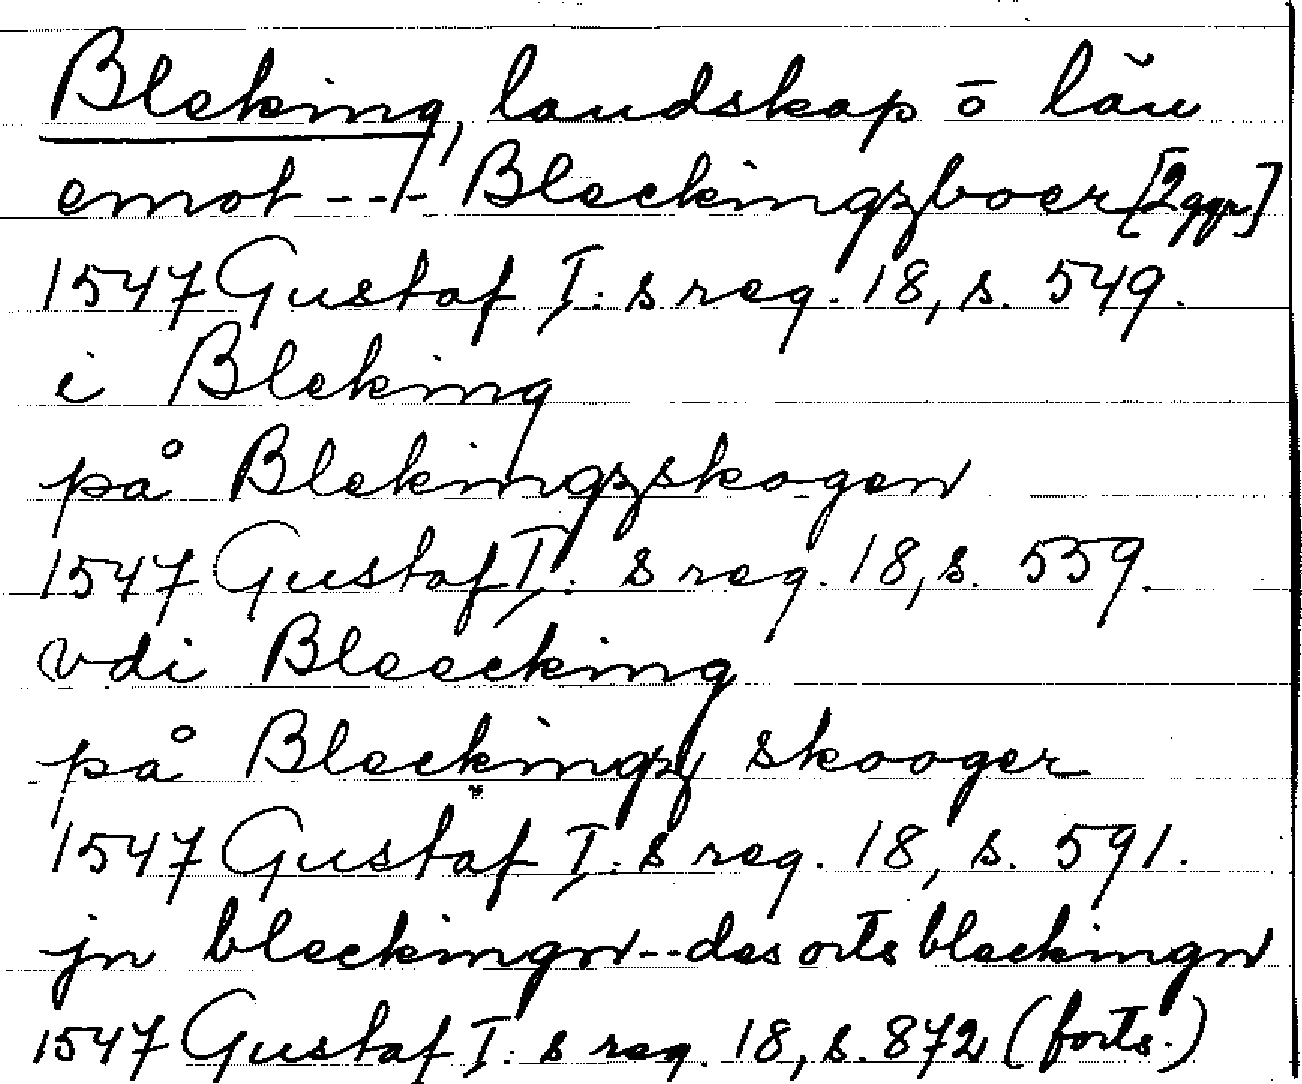 Bleking, landskap ō län
emot --- Bleckingzboer [2ggr]
1547 Gustaf I:s reg. 18, s. 549.
i Bleking
på Blekingzskogen
1547 Gustaf I:s reg. 18, s. 559.
vdi Bleecking
på Bleckingz skooger
1547 Gustaf I:s reg. 18, s. 591.
jn bleckingn--des orts bleckingn
1547 Gustaf I:s reg. 18, s. 872 (forts.)